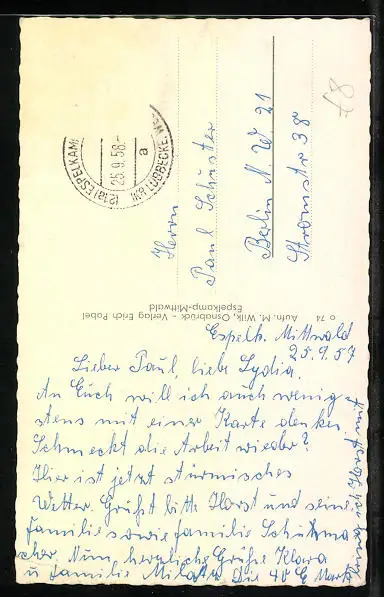 Espelk. Mittwald
25.9.57
Lieber Paul, liebe Lydia.
An Euch will ich auch wenig-
stens mit einer Karte denken.
Schmeckt die Arbeit wieder?
Hier ist jetzt stürmisches
Wetter. Grüßt bitte Horst und seine
Familie sowie Familie Schuhma
cher. Nun herzliche Grüße Klara
u Familie Die 40 Mark
ich Horst mit
Herrn
Paul Schuster
Berlin N. W. 21
Stromstr 38
48
(21a) ESPELKAMP
25.9.58.-
a
LÜBBECKE
o 74 Aufn. M. Wilk, Osnabrück - Verlag Erich Pabel
Espelkamp-Mittwald